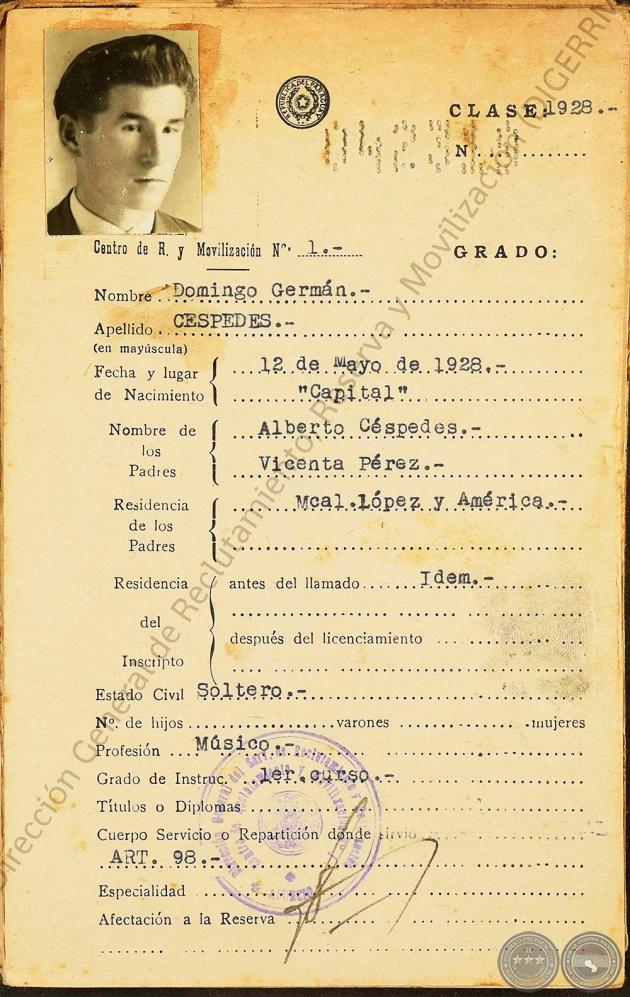 REPUBLICA DEL PARAGUAY
CLASE: 1928.-
Nº
Centro de R. y Movilización Nº. 1.-
GRADO:
Nombre Domingo Germán.-
Apellido CESPEDES.-
(en mayúscula)
Fecha y lugar de Nacimiento 12 de Mayo de 1928.-
"Capital"
Nombre de los Padres Alberto Céspedes.-
Vicenta Pérez.-
Residencia de los Padres Mcal.López y América.-
Residencia del Inscripto antes del llamado Idem.-
después del licenciamiento
Estado Civil Soltero.-
Nº. de hijos varones mujeres
Profesión Músico.-
Grado de Instruc. 1er.curso.-
Títulos o Diplomas
Cuerpo Servicio o Repartición donde sirvió
ART. 98.-
Especialidad
Afectación a la Reserva
Dirección General de Reclutamiento, Reserva y Movilización (DIGERRMOV